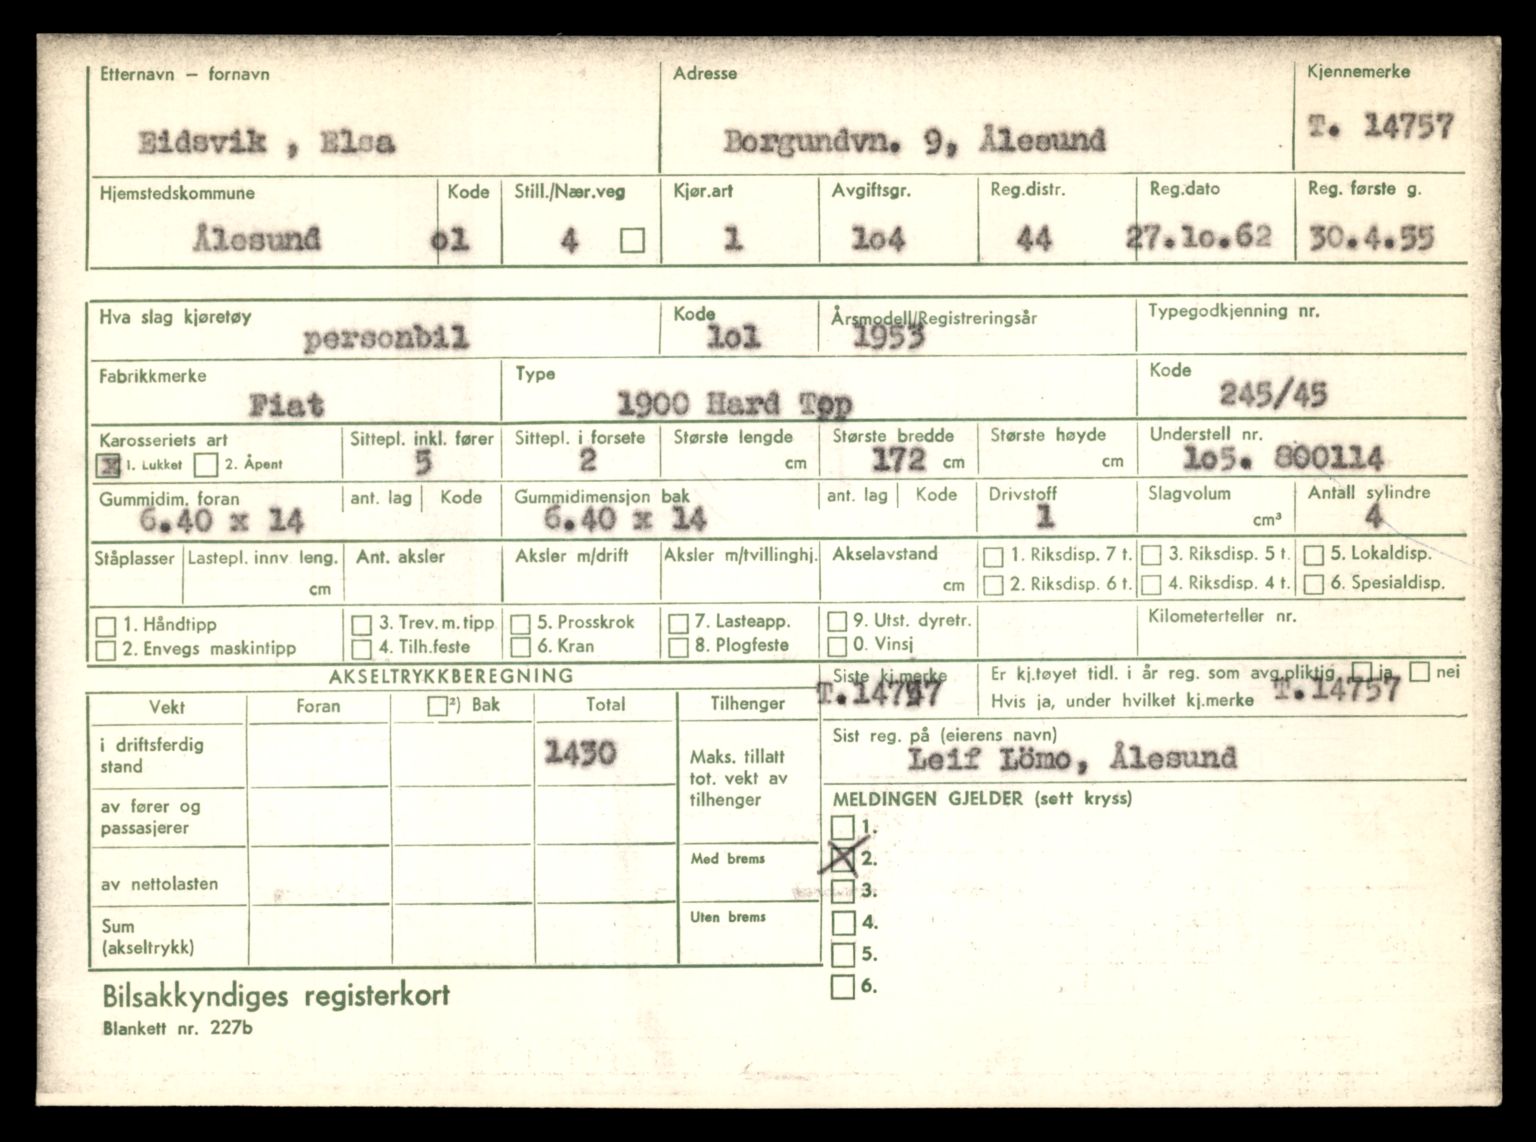 Etternavn — fornavn Adresse Kjennemerke
Eidsvik , Elsa Borgundvn. 9, Ålesund T. 14757
Hjemstedskommune Kode Still./Nær.veg Kjør.art Avgiftsgr. Reg.distr. Reg.dato Reg. første g.
Ålesund o1 4 1 1o4 44 27.1o.62 30.4.55
Hva slag kjøretøy Kode Årsmodell/Registreringsår Typegodkjenning nr.
personbil 1o1 1953
Fabrikkmerke Type Kode
Fiat 1900 Hard Top 245/45
Karosseriets art Sittepl. inkl. fører Sittepl. i forsete Største lengde Største bredde Største høyde Understell nr.
x 1. Lukket 2. Åpent 5 2 cm 172 cm cm 1o5. 800114
Gummidim. foran ant. lag Kode Gummidimensjon bak ant. lag Kode Drivstoff Slagvolum Antall sylindre
6.40 x 14 6.40 x 14 1 cm³ 4
Ståplasser Lastepl. innv leng. Ant. aksler Aksler m/drift Aksler m/tvillinghj. Akselavstand 1. Riksdisp. 7 t. 3. Riksdisp. 5 t. 5. Lokaldisp.
cm cm 2. Riksdisp. 6 t. 4. Riksdisp. 4 t. 6. Spesialdisp.
1. Håndtipp 3. Trev. m. tipp 5. Prosskrok 7. Lasteapp. 9. Utst. dyretr. Kilometerteller nr.
2. Envegs maskintipp 4. Tilh.feste 6. Kran 8. Plogfeste 0. Vinsj
AKSELTRYKKBEREGNING Siste kj.merke Er kj.tøyet tidl. i år reg. som avg.pliktig ja nei
T.14757 Hvis ja, under hvilket kj.merke T.14757
Vekt Foran ²) Bak Total Tilhenger
Sist reg. på (eierens navn)
i driftsferdig stand 1430 Maks. tillatt tot. vekt av tilhenger Leif Lömo, Ålesund
av fører og passasjerer MELDINGEN GJELDER (sett kryss)
1.
Med brems X 2.
av nettolasten 3.
Uten brems 4.
Sum (akseltrykk) 5.
6.
Bilsakkyndiges registerkort
Blankett nr. 227b